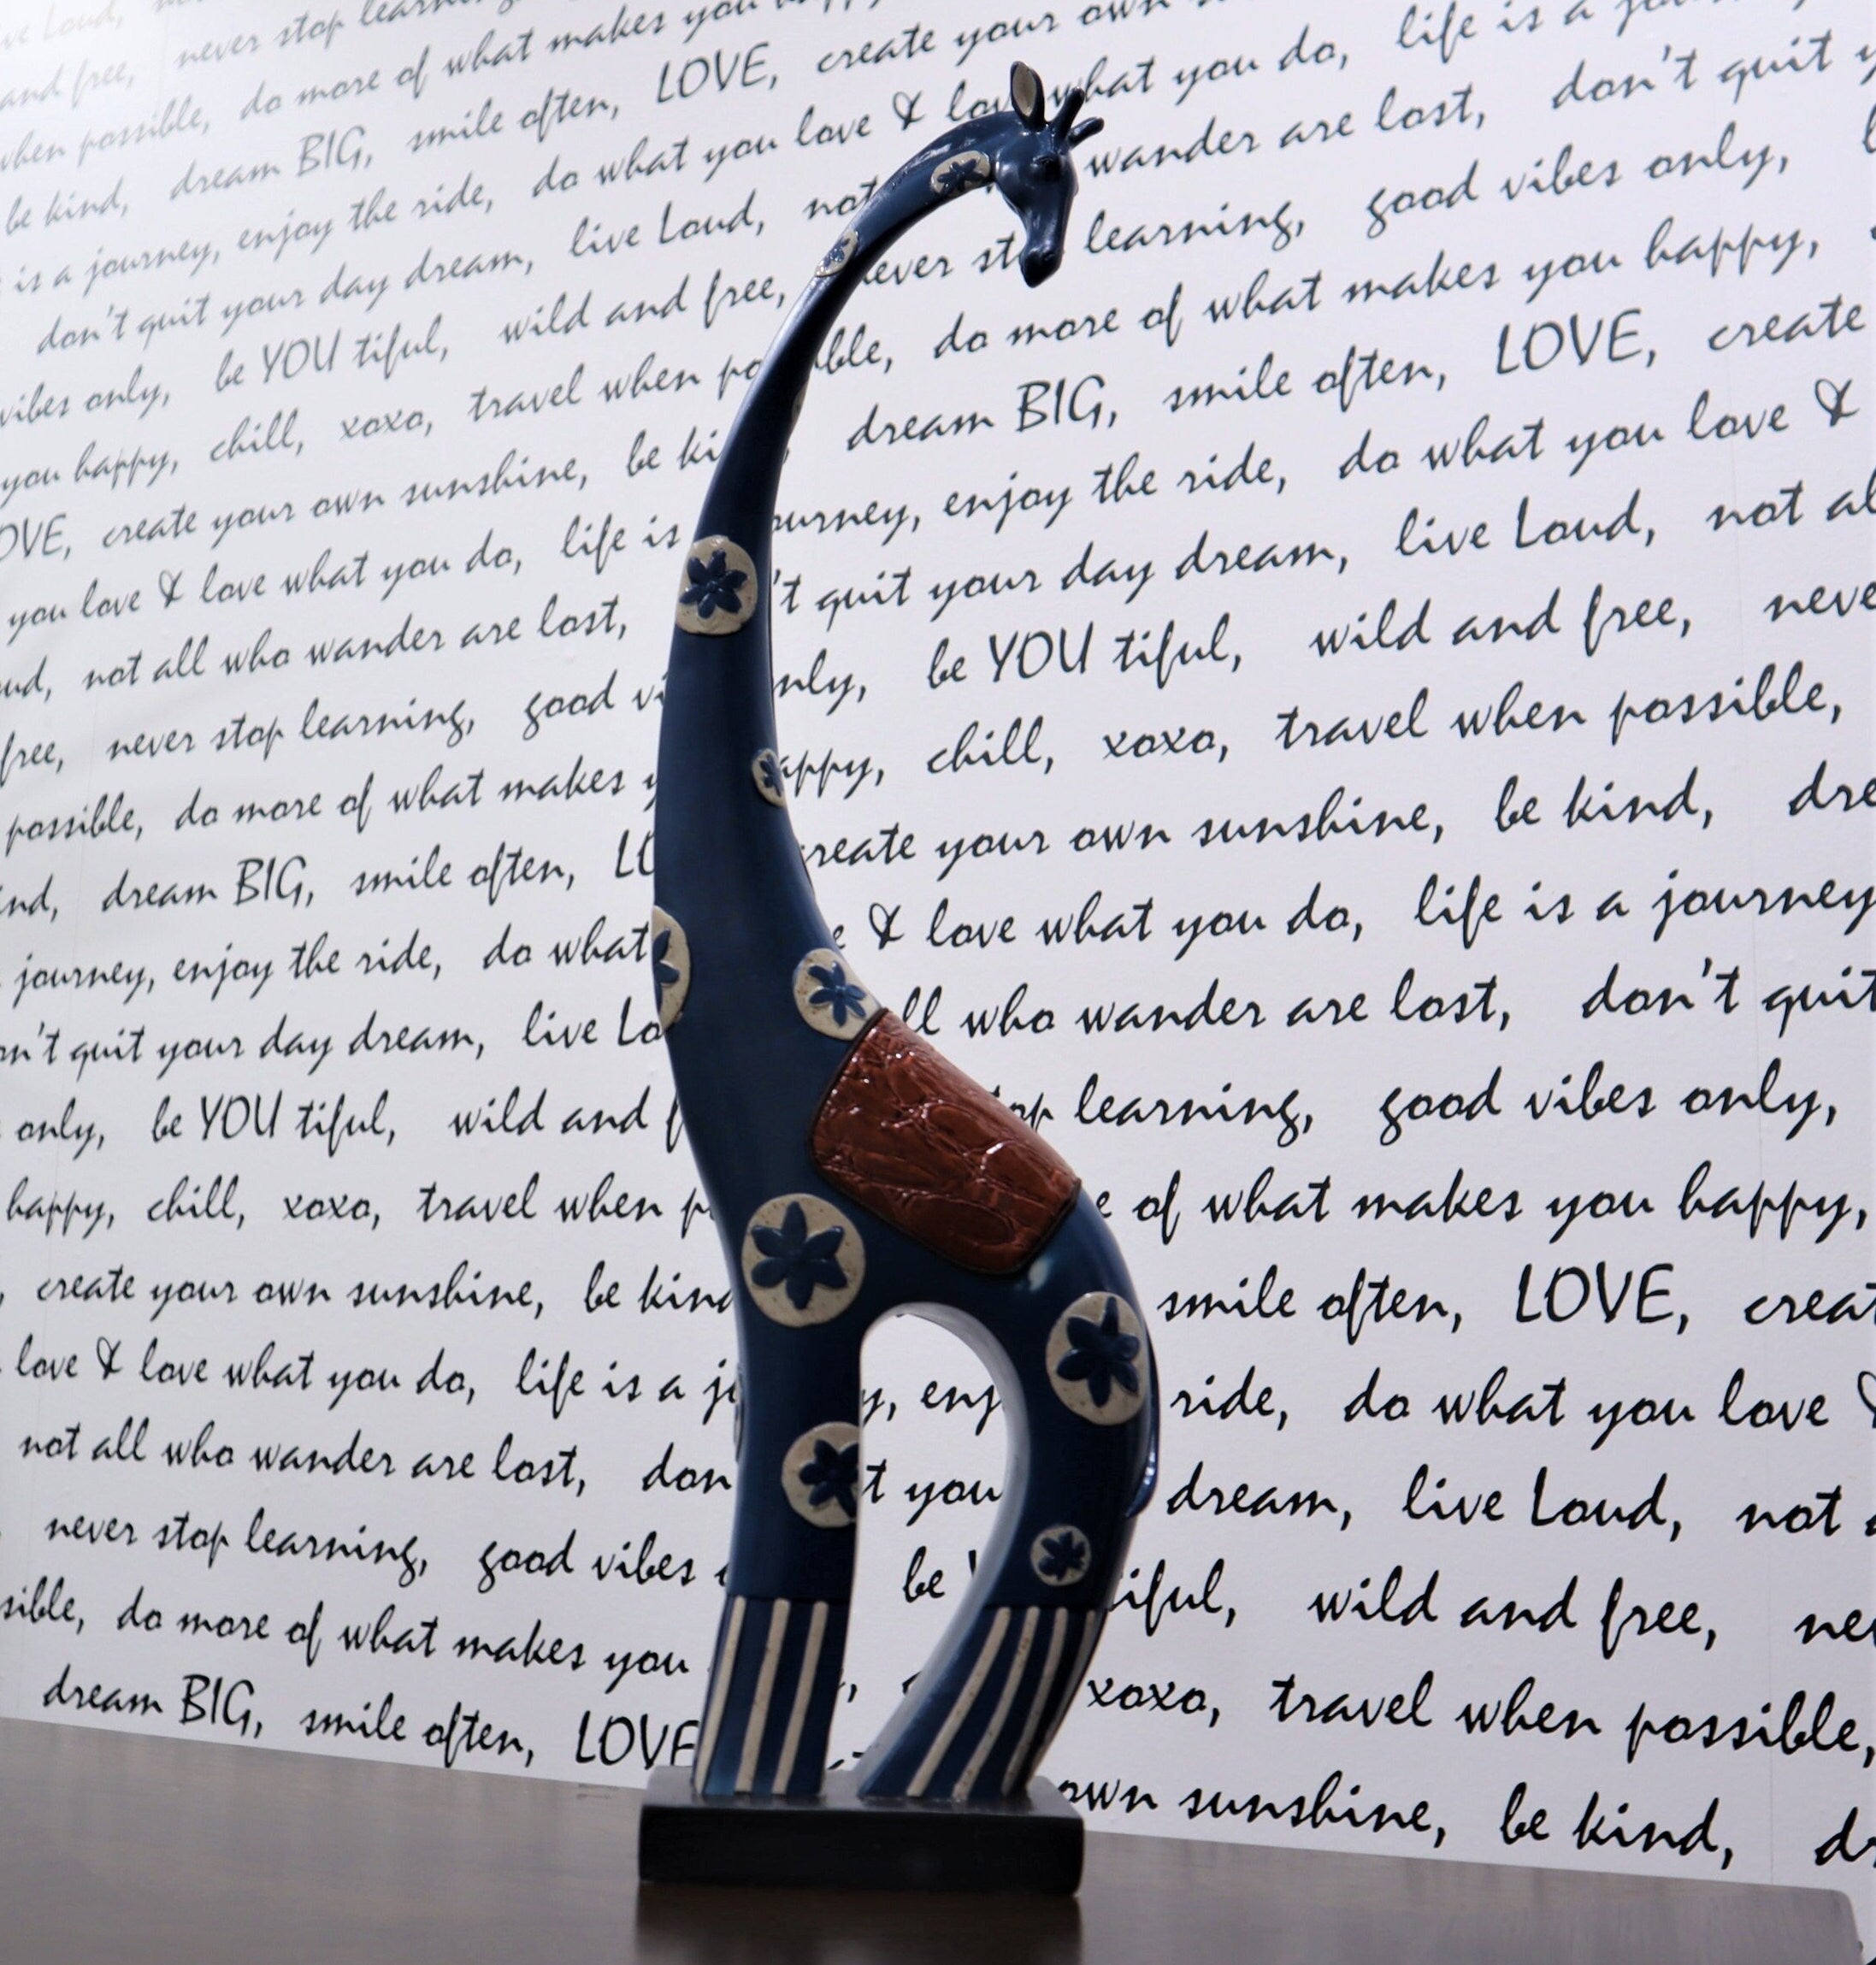 never stop
and free, never stop learning, do more of what makes you
when possible, do more of what makes you happy
be kind, dream BIG, smile often, LOVE, create your own
is a journey, enjoy the ride, do what you love & love what you do, life is a
don't quit your day dream, live Loud, not wander are lost, don't quit
vibes only, be YOU tiful, wild and free, never learning, good vibes only,
you happy, chill, xoxo, travel when do more of what makes you happy,
create your own sunshine, be dream BIG, smile often, LOVE, create
you love & love what you do, life is journey, enjoy the ride, do what you love &
not all who wander are lost, quit your day dream, live Loud, not
free, never stop learning, good be YOU tiful, wild and free,
possible, do more of what makes chill, xoxo, travel when possible,
dream BIG, smile often, create your own sunshine, be kind,
journey, enjoy the ride, do what & love what you do, life is a journey
quit your day dream, live who wander are lost, don't quit
only, be YOU tiful, wild and learning, good vibes only,
happy, chill, xoxo, travel when of what makes you happy,
create your own sunshine, be smile often, LOVE,
love & love what you do, life is a ride, do what you love
not all who wander are lost, dream, live Loud, not
never stop learning, good vibes be wild and free,
do more of what makes you xoxo, travel when possible,
dream BIG, smile often, LOVE own sunshine, be kind,